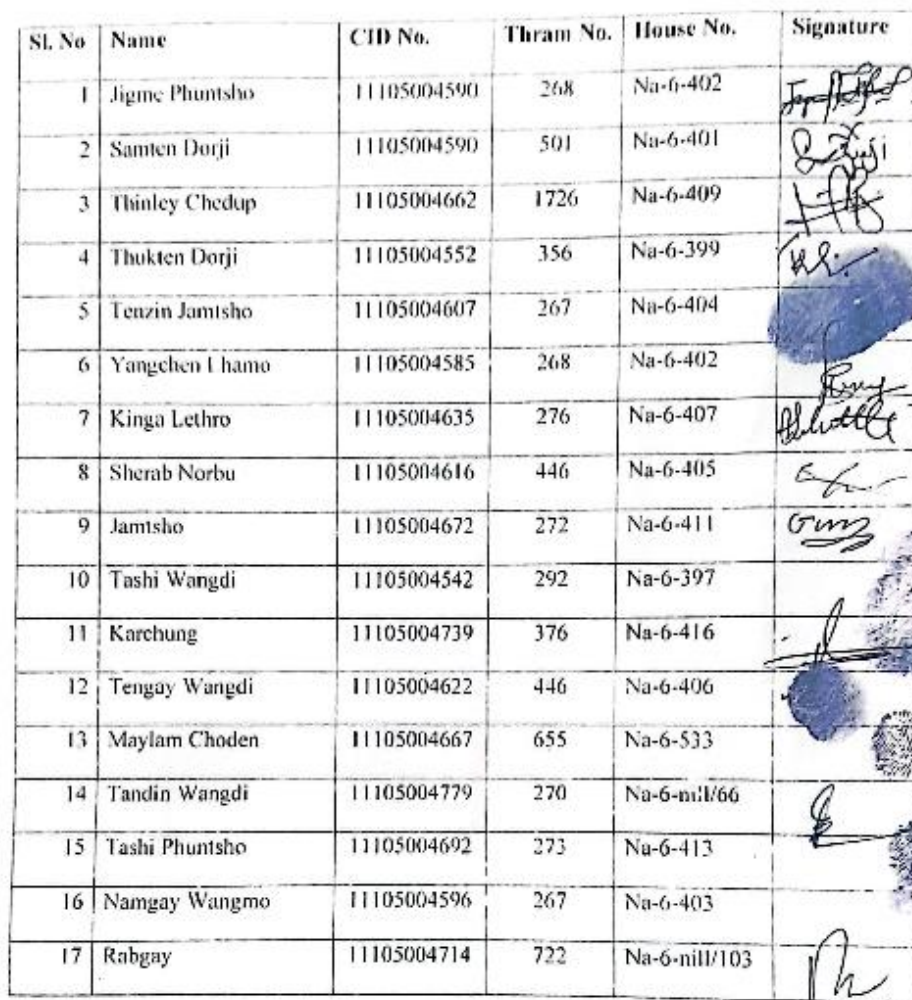 Sl. No Name CID No. Thram No. House No. Signature
1 Jigme Phuntsho 11105004590 268 Na-6-402
2 Samten Dorji 11105004590 501 Na-6-401
3 Thinley Chedup 11105004662 1726 Na-6-409
4 Thukten Dorji 11105004552 356 Na-6-399
5 Tenzin Jamtsho 11105004607 267 Na-6-404
6 Yangchen Lhamo 11105004585 268 Na-6-402
7 Kinga Lethro 11105004635 276 Na-6-407
8 Sherab Norbu 11105004616 446 Na-6-405
9 Jamtsho 11105004672 272 Na-6-411
10 Tashi Wangdi 11105004542 292 Na-6-397
11 Karchung 11105004739 376 Na-6-416
12 Tengay Wangdi 11105004622 446 Na-6-406
13 Maylam Choden 11105004667 655 Na-6-533
14 Tandin Wangdi 11105004779 270 Na-6-nill/66
15 Tashi Phuntsho 11105004692 273 Na-6-413
16 Namgay Wangmo 11105004596 267 Na-6-403
17 Rabgay 11105004714 722 Na-6-nill/103